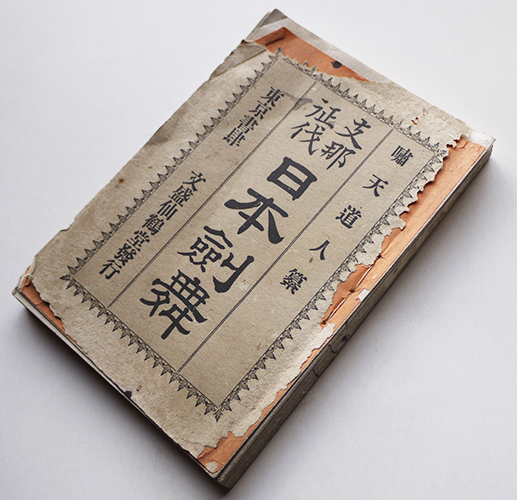 嘯天道人纂
支那
征伐
日本劍舞
東京書肆
文盛仙鶴堂發行